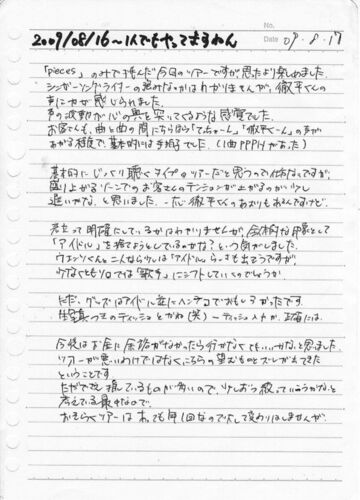 No.
Date 09・8・17
2009/08/16〜1人でもやってきすわん
「pieces」のみで挑んだ今回のツアーですが思たより楽しめました。
シンガーソングライターの強みなのかはわかりませんが、徹平くんの
声に力が感じられました。
声の波動が心の奥を突いてくるような感覚でした。
お客さんも、曲と曲の間にちらほら「てっちゃーん」「徹平くーん」の声が
あがる程度で、基本的には手拍子でした。(1曲PPPHがあった)
基本的にじっくり聴くタイプのツアーだと思うので仕方ないですが、
盛り上がるゾーンでのお客さんのテンションが上がるのが少し
遅いかな、と思いました。一応徹平くんのあおりもあるんですけど。
君立って明確にしているかはわかりませんが、全体的な印象として
「アイドル」を捨てようとしているのかな?という気がしました。
ウエンツくんと二人なら少しは「アイドル」らしさも出そうですが
少なくともソロでは「歌手」にシフトしていくのでしょうか。
ただ、グッズはアイドル並にヘンテコでおもしろかったです。
生写真つきのティッシュとかね(笑) ティッシュ入れか、正確には。
今後はお金に余裕がなかったら行かなくてもいいかな、と思いました。
ツアーが悪いわけではなく、こちらの望むものとズレが出てきた
ということです。
ただでさえ推しているものが多いので、少しずつ絞っていこうかな、と
考えている最中なので。
おそらくツアーはあっても年1回なので大して変わりはしませんが。